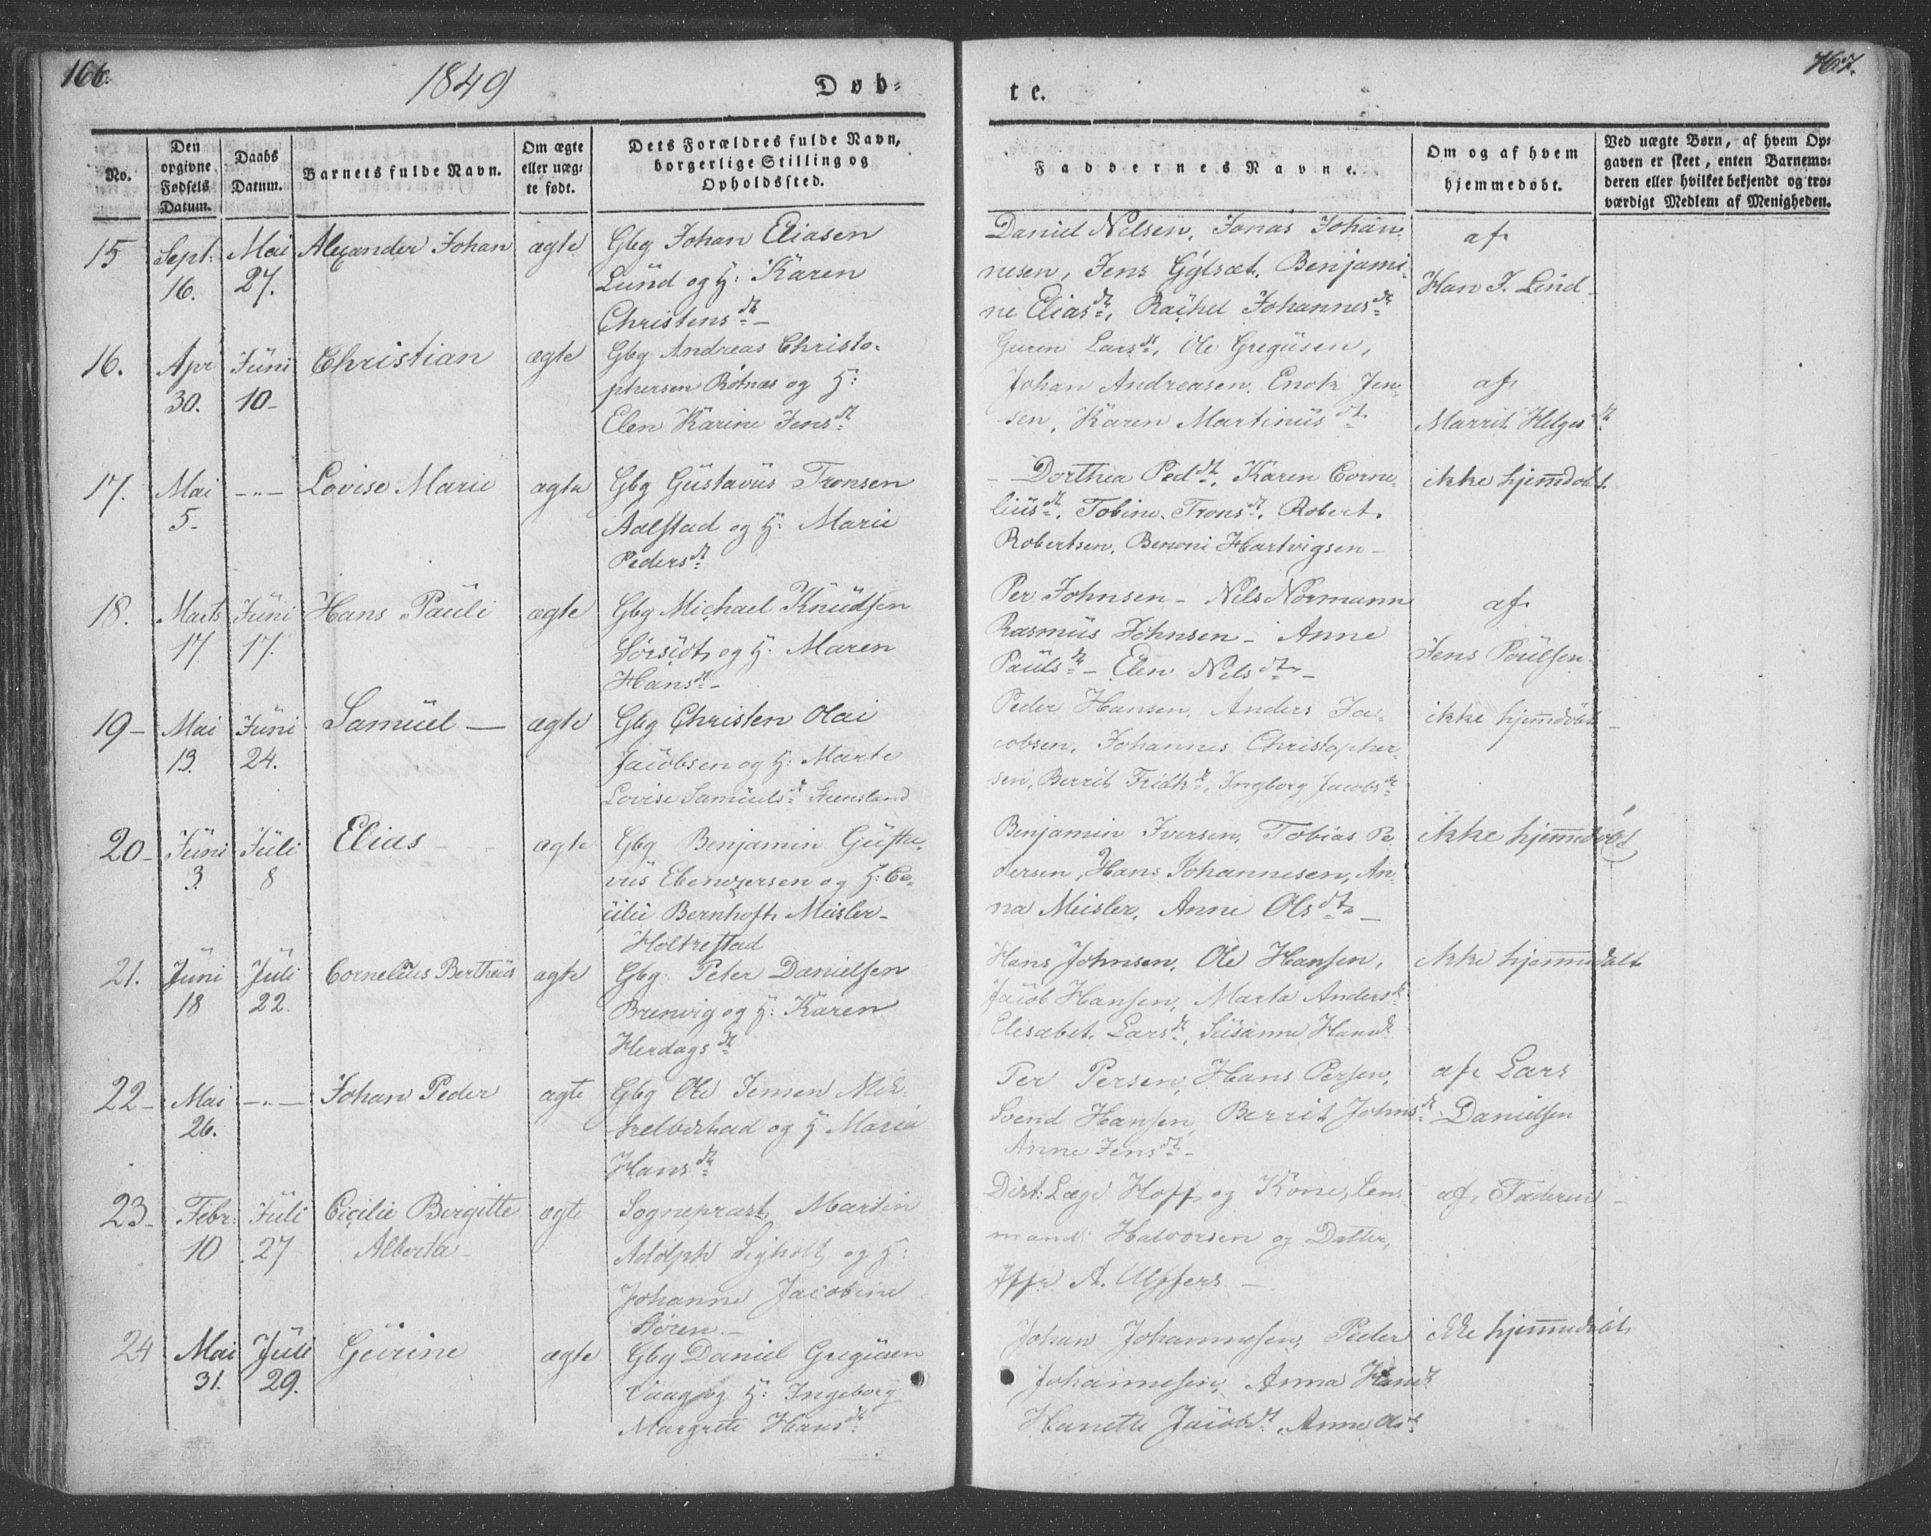 166.
1849
Døb-
te.
167.
No.
Den opgivne Fødsels Datum.
Daabs Datum.
Barnets fulde Navn.
Om ægte eller uæg-
te født.
Dets Forældres fulde Navn,
borgerlige Stilling og
Opholdssted.
Faddernes Navne.
Om og af hvem
hjemmedøbt.
Ved uægte Børn, af hvem Op-
gaven er skeet, enten Barnemo-
deren eller hvilket bekjendt og tro-
værdigt Medlem af Menigheden.
15 Sept: 16. Mai 27. Alexander Johan ægte
Gbg Johan Eliasen
Lund og H: Karen
Christensdtr
Daniel Nilsen, Jonas Johan-
nesen, Jens Gylset, Benjami-
ne Eliasdtr, Rachel Johannesdtr
af
Han J. Lind
16. Apr 30. Juni 10 Christian ægte
Gbg Andreas Christo-
phersen Rotnæs og H:
Elen Karine Jensdt
Guren Larsdt, Ole Gregusen,
Johan Andreasen, Enok Jen-
sen, Karen Martinusdt
af
Marrit Helgesdt
17. Mai 5. -"- Lovise Marie ægte
Gbg Gustavus Tronsen
Aalstad og H: Marie
Pedersdt
Dorthea Peddt, Karen Corne-
liusdt, Tobine Tronsdt, Robert
Robertsen, Benoni Hartvigsen
ikke hjemdøbt
18. Marts 17 Juni 17. Hans Pauli ægte
Gbg Michael Knudsen
og H. Maren
Hansdt
Per Johnsen - Nils Normann
Rasmus Johnsen - Anne
Paulsdt - Elen Nilsdt
af
Jens Poulsen
19 Mai 13. Juni 24. Samuel ægte
Gbg Christen Olai
Jacobsen og H: Marte
Lovise Samuelsdt Steensland
Peder Hansen, Anders Ja-
cobsen, Johannes Christopher-
sen, Berrit Fridksdt, Ingborg Jacobsdt
ikke hjemdøbt
20 Juni 3. Juli 8 Elias ægte
Gbg Benjamin Gusta-
vus Ebenezersen og H: Ce-
cilie Bernhoft Meisler
Holkestad
Benjamin Iversen, Tobias Pe-
dersen, Hans Johannesen, An-
na Meisler, Anne Olsdt
ikke hjemmedøbt
21. Juni 18 Juli 22. Cornelius Bertheus ægte
Gbg: Peter Danielsen
Brenvig og H: Karen
Herdagsdt
Hans Johnsen, Ole Hansen,
Jacob Hansen, Marta Andersdt
Elisabet Larsdt, Susanne Hansdt
ikke hjemmedøbt
22 Mai 26. -"- Johan Peder ægte
Gbg Ole Jensen
og H Maria
Hansdt
Per Persen, Hans Persen,
Svend Hansen, Berrit Johnsdt
Anne Jensdt
af Lars
Danielsen
23 Febr: 10 Juli 27 Cecilie Birgitte
Alberta ægte
Sogneprest Martin
Adolph Sigholt og H:
Johanne Jacobine
Støren
Dist: Læge Hoff og Kone, Lens
mand Halvorsen og Datter,
Jfr A. Ulffers
af Faderen
24 Mai 31. Juli 29. Gurine ægte
Gbg Daniel Gregusen
Vaag og H: Ingeborg
Margrete Hansdt
Johan Johannesen, Peder
Johannesen, Anna Hansdt
Hanette Jacobdt, Anne Olsdt
ikke hjemmedøbt